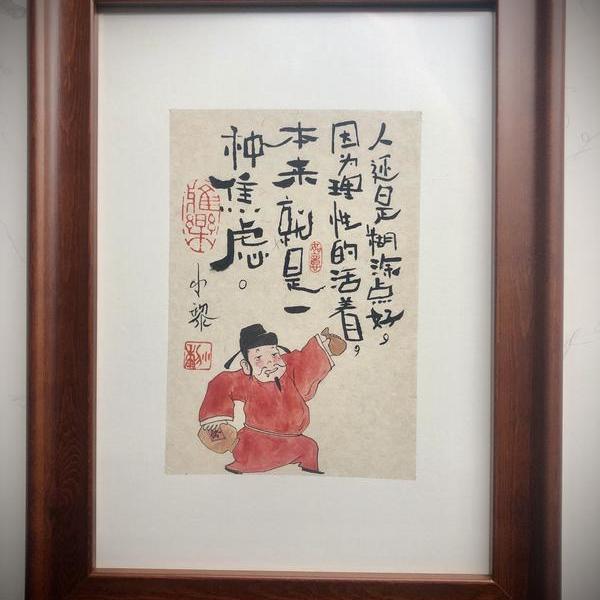 人还是糊涂点好，
因为理性的活着，
本来就是一
种焦虑。
小黎